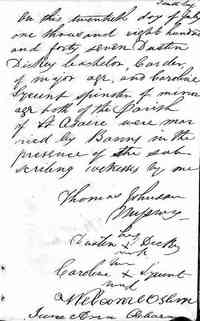 On this twentieth day of July
one thousand and eight hundred
and forty seven Dustin
Dickey bachelor, Carder
of major age, and Caroline
spinster of minor
age both of the Parish
of St were mar
ried by Banns in the
presence of the sub
scribing witnesses by me
Thomas Johnson
Missry
his
Dustin x Dickey
mark
her
Caroline x
mark
Welcome Osborn
Ann Osborn